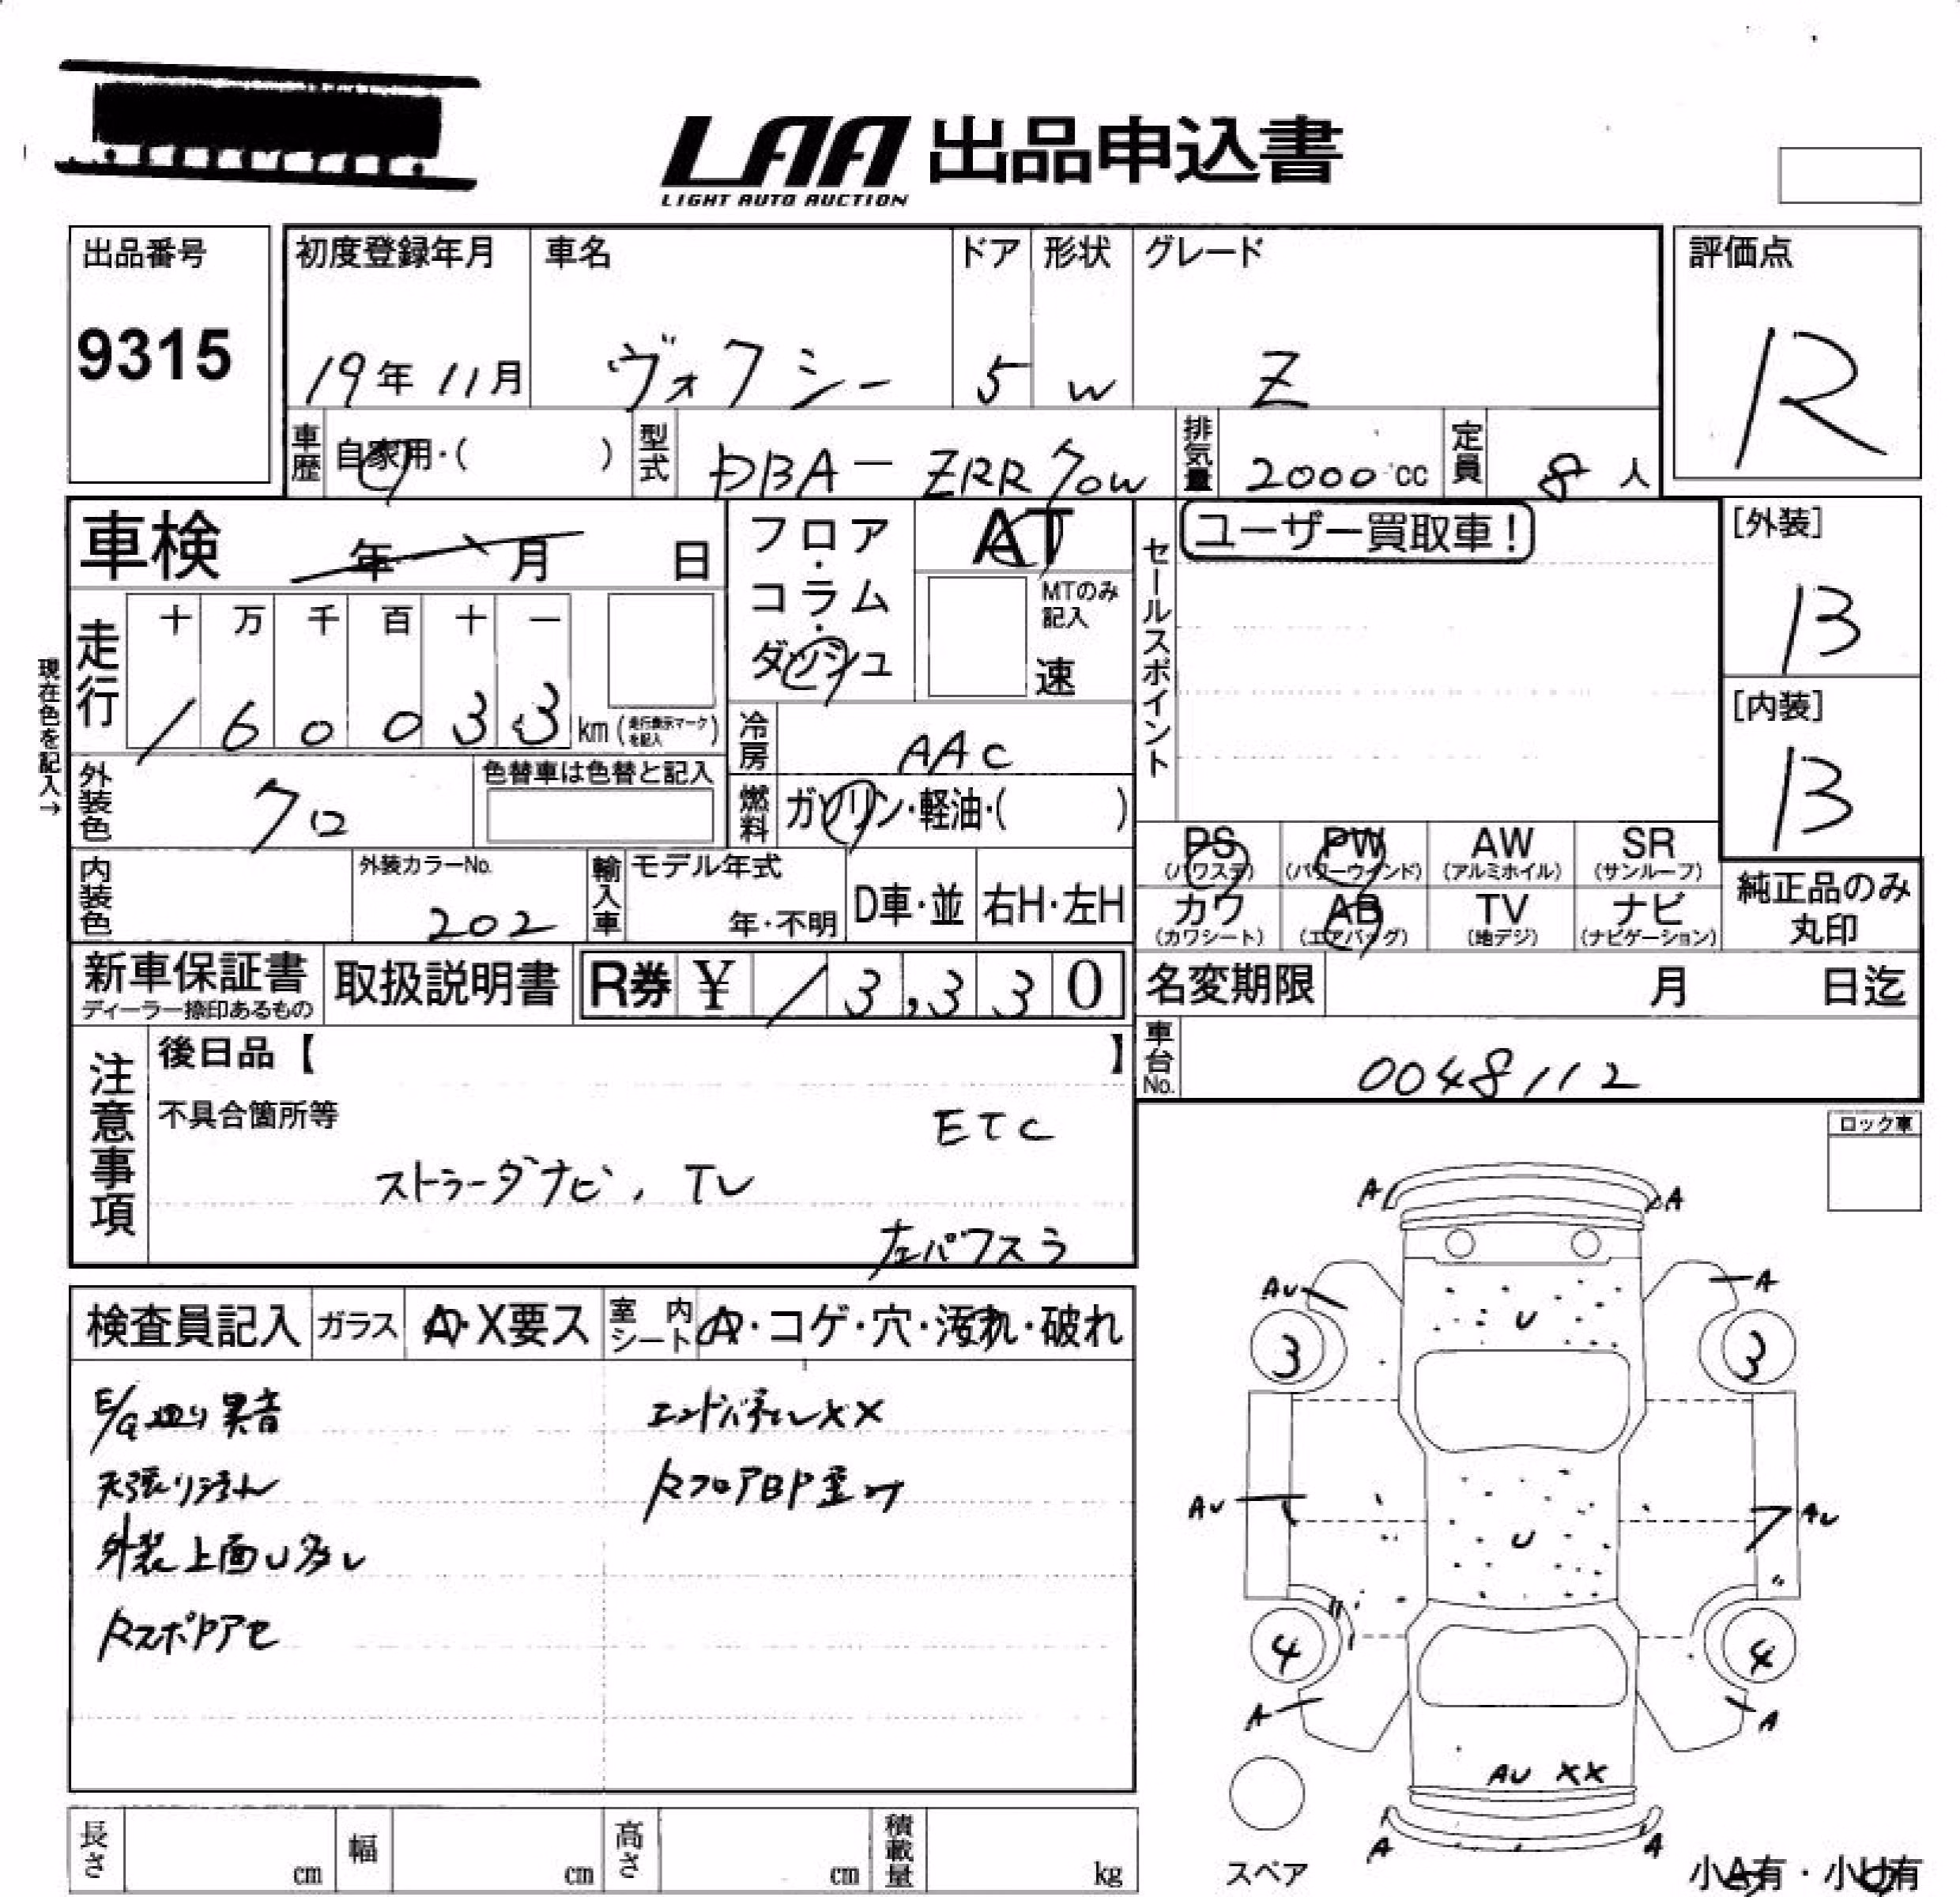 LAA 出品申込書
LIGHT AUTO AUCTION
出品番号
9315
初度登録年月
19年 11月
車名
ヴォクシー
ドア
5
形状
W
グレード
Z
評価点
R
車歴
自家用・( )
型式
DBA-ZRR70W
排気量
2000 cc
定員
8人
車検 年 月 日
フロア・コラム・ダッシュ
AT
MTのみ記入
速
セールスポイント
ユーザー買取車!
[外装]
B
[内装]
B
現在色を記入→
走行
十 万 千 百 十 一
1 6 0 0 3 3 km (走行表示マークを記入)
冷房
AAC
燃料
ガソリン・軽油・( )
外装色
クロ
色替車は色替と記入
内装色
外装カラーNo.
202
輸入車
モデル年式
年・不明
D車・並
右H・左H
PS (パワステ)
PW (パワーウインド)
AW (アルミホイル)
SR (サンルーフ)
カワ (カワシート)
AB (エアバッグ)
TV (地デジ)
ナビ (ナビゲーション)
純正品のみ丸印
新車保証書
ディーラー捺印あるもの
取扱説明書
R券 ¥ 13,330
名変期限 月 日迄
車台No.
0048112
注意事項
後日品【 】
不具合箇所等
ETC
ストラーダナビ, TV
左パワスラ
ロック車
検査員記入
ガラス
A・X要ス
室内シート
A・コゲ・穴・汚れ・破れ
E/G廻り異音
エンドパネルXX
天張り浮き
RフロアBP歪み
外装上面U多し
外装
A A
AU A
U
3 3
AU AU
U
4 4
A A
AU XX
A A
スペア
小A有・小U有
長さ cm
幅 cm
高さ cm
積載量 kg